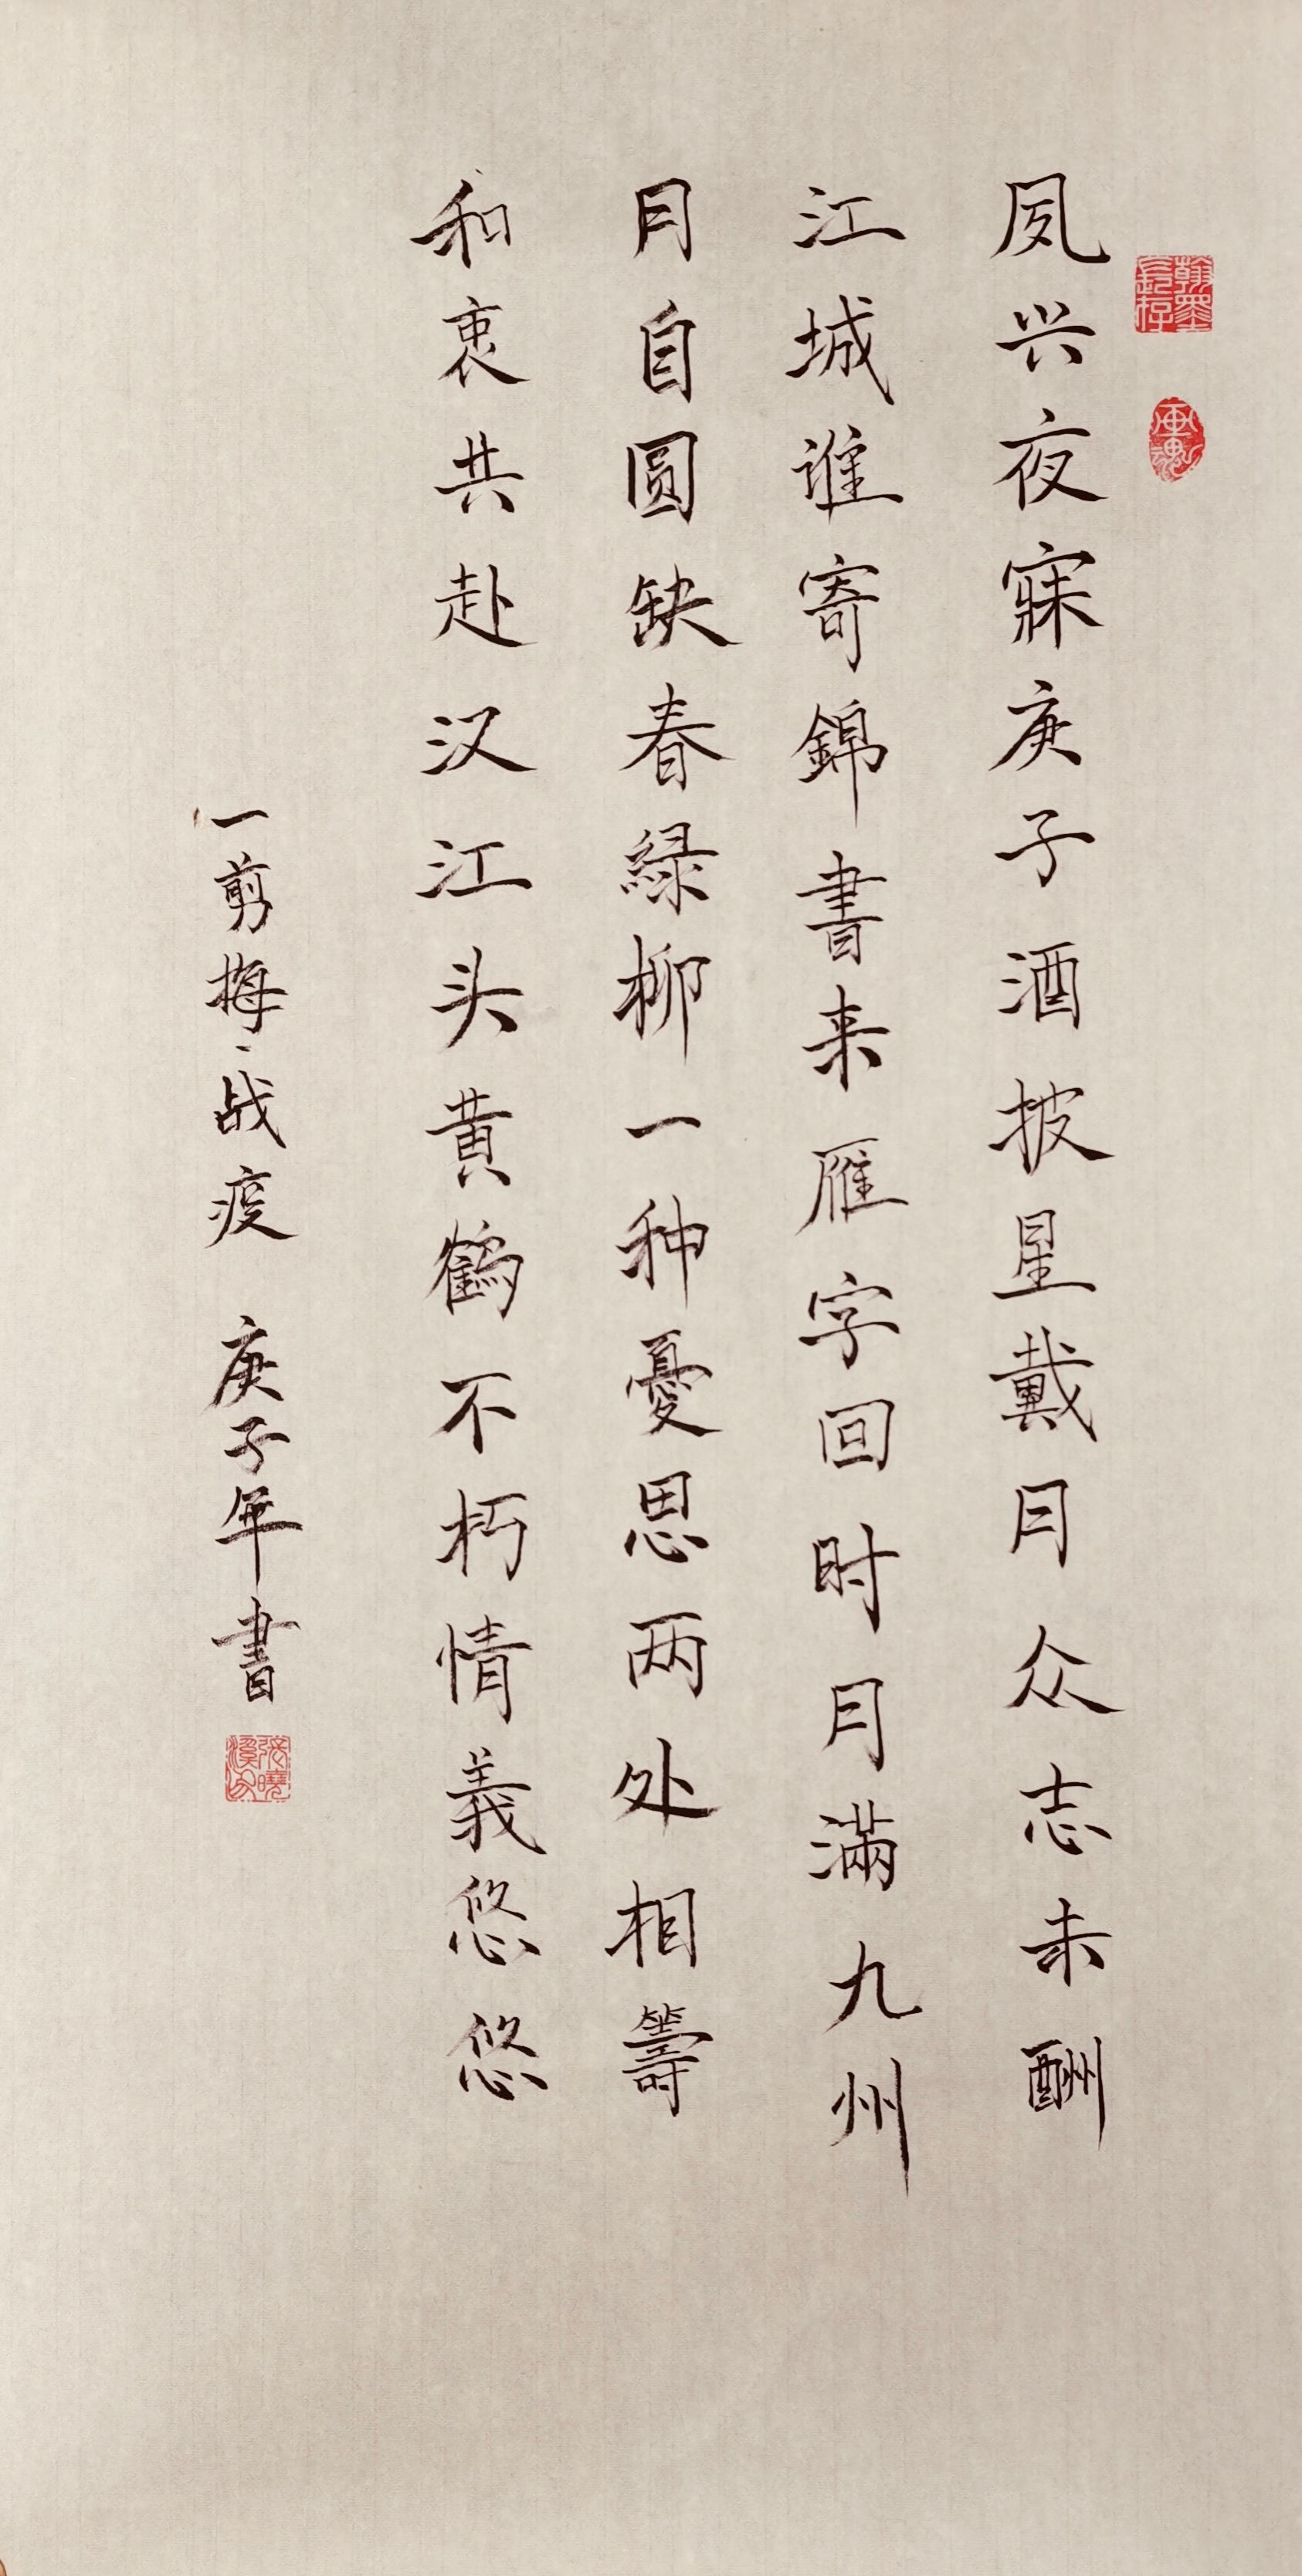 夙兴夜寐庚子酒披星戴月众志未酬
江城谁寄錦書来雁字回时月滿九州
月自圆缺春緑柳一种憂思两处相籌
和衷共赴汉江头黄鹤不朽情義悠悠
一剪梅·战疫 庚子年書
翰墨長存